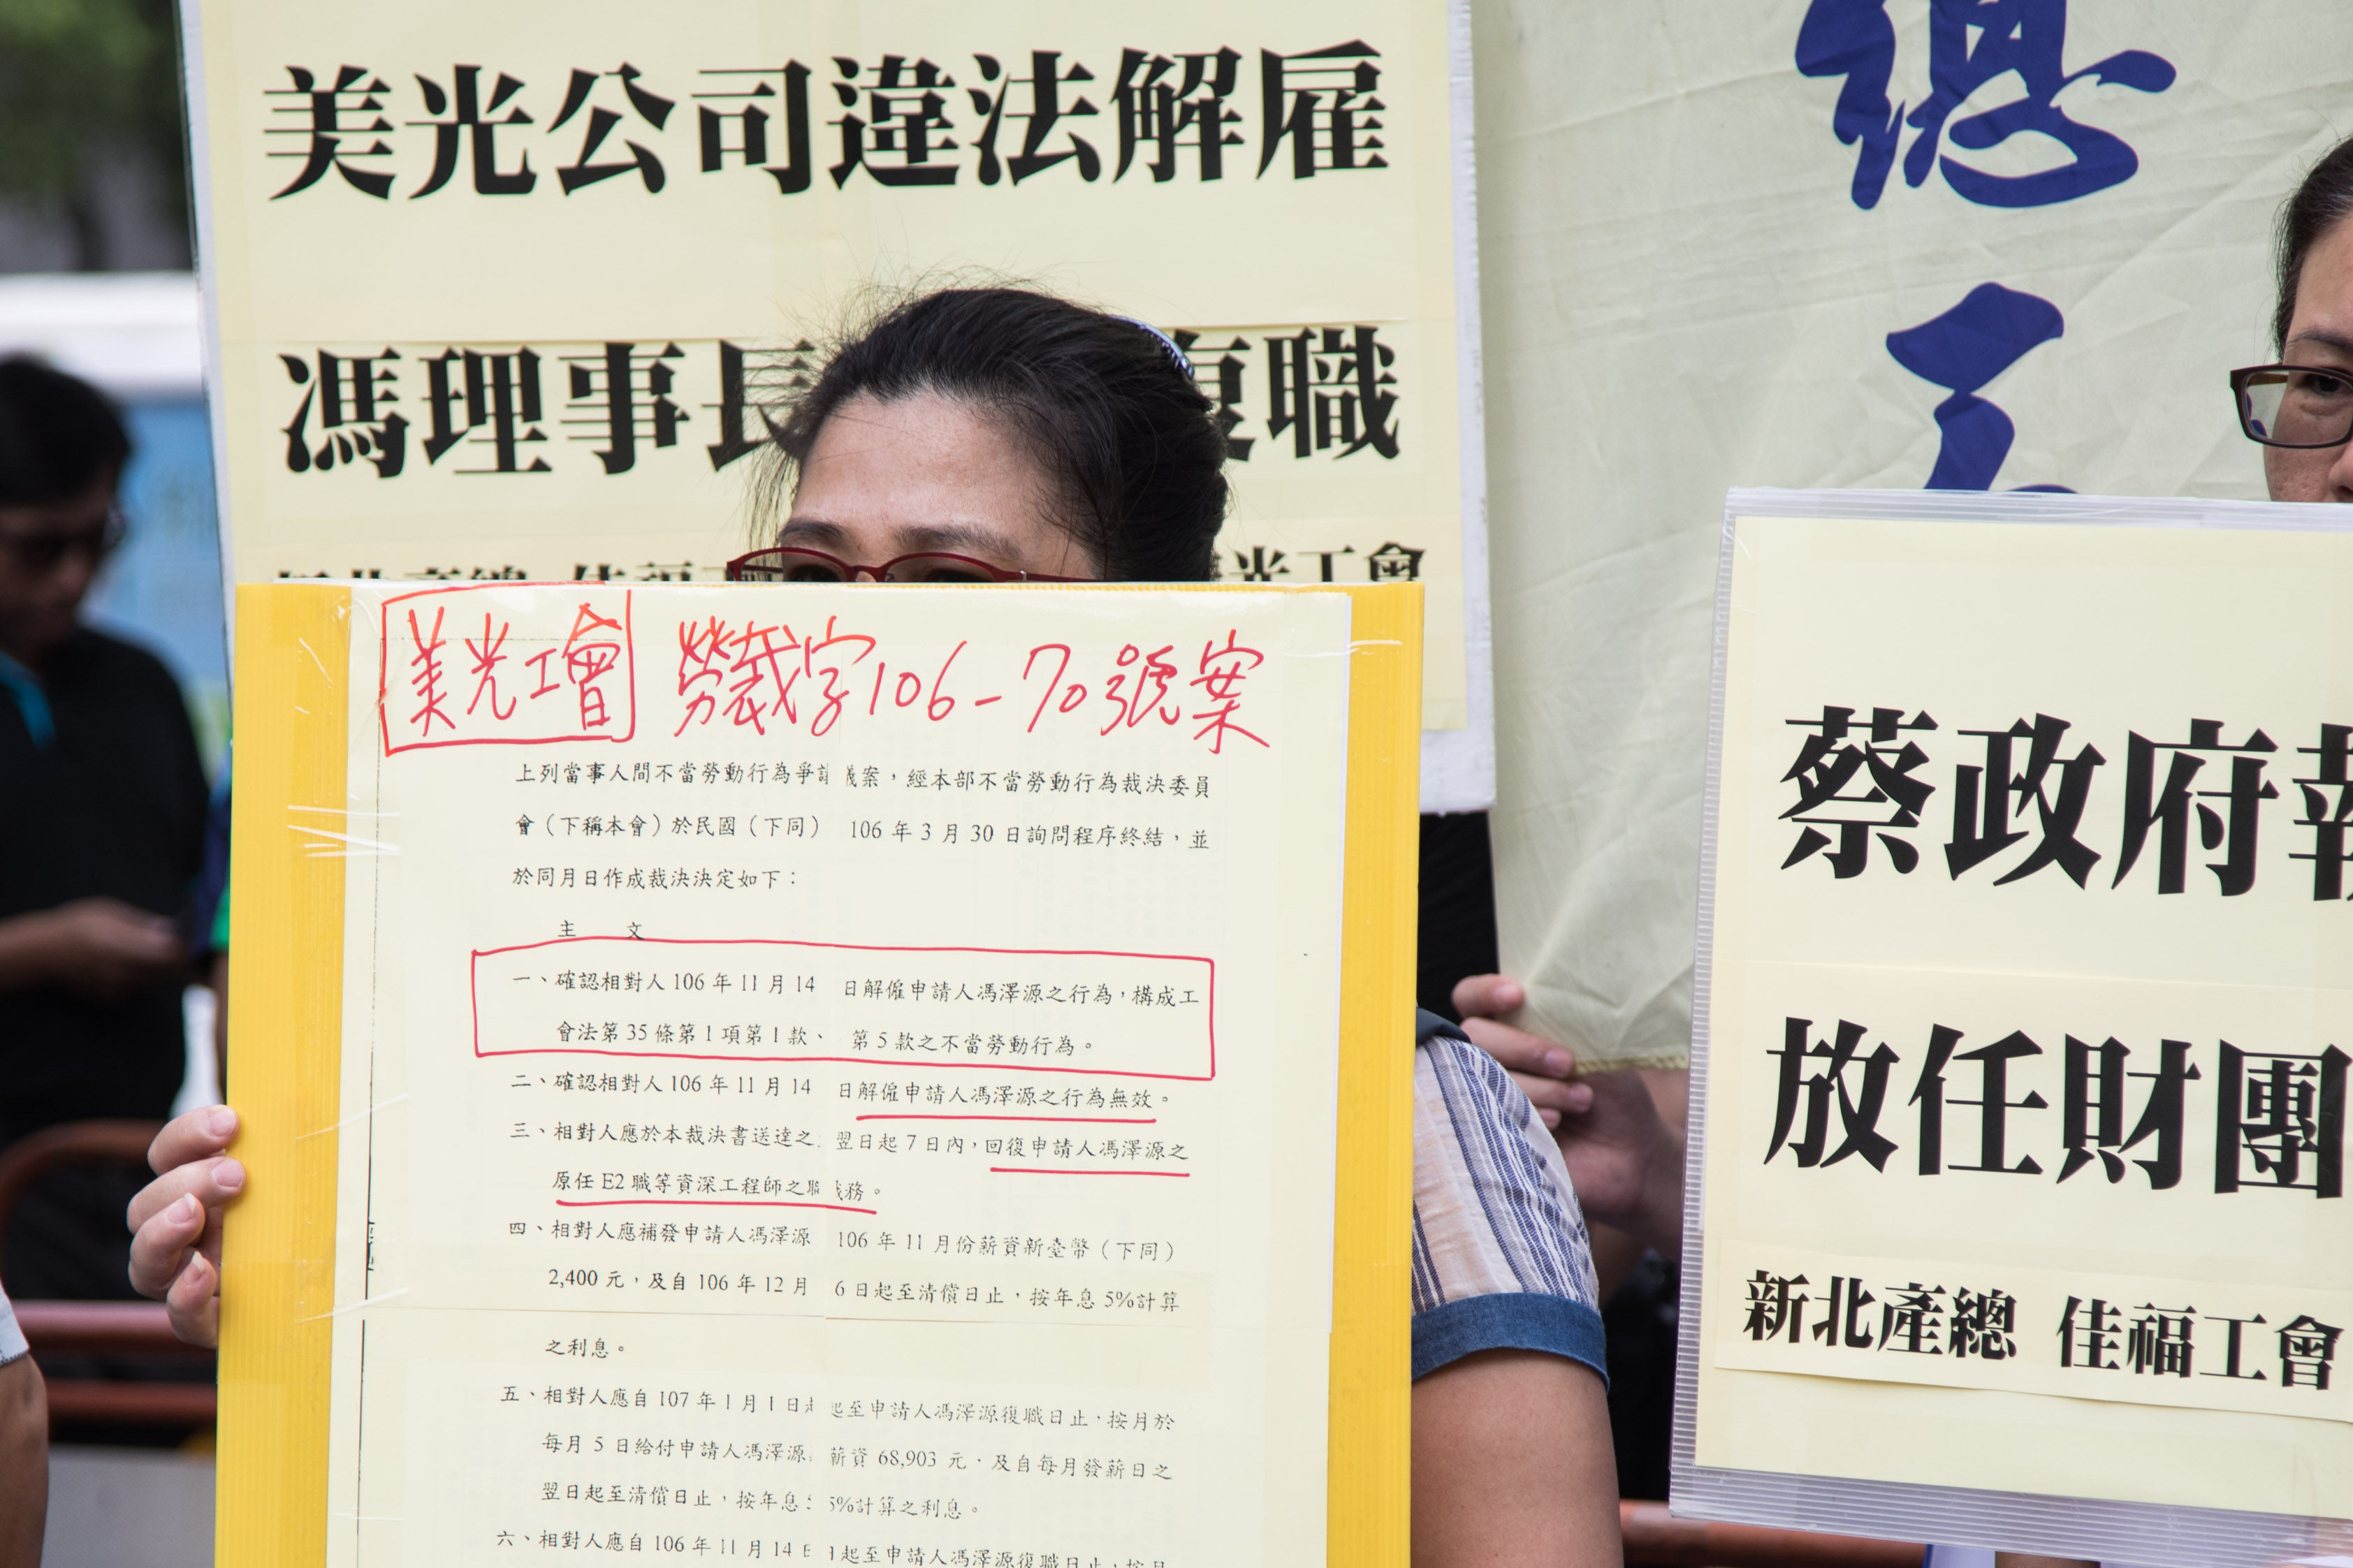 美光公司違法解雇
馮理事長 復職
光工會
總
工
美光工會 勞裁字106-70號案
上列當事人間不當勞動行為爭議案，經本部不當勞動行為裁決委員
會（下稱本會）於民國（下同）106 年 3 月 30 日詢問程序終結，並
於同月日作成裁決決定如下：
主 文
一、確認相對人 106 年 11 月 14 日解僱申請人馮澤源之行為，構成工
會法第 35 條第 1 項第 1 款、第 5 款之不當勞動行為。
二、確認相對人 106 年 11 月 14 日解僱申請人馮澤源之行為無效。
三、相對人應於本裁決書送達之翌日起 7 日內，回復申請人馮澤源之
原任 E2 職等資深工程師之職務。
四、相對人應補發申請人馮澤源 106 年 11 月份薪資新臺幣（下同）
2,400 元，及自 106 年 12 月 6 日起至清償日止，按年息 5%計算
之利息。
五、相對人應自 107 年 1 月 1 日起至申請人馮澤源復職日止，按月於
每月 5 日給付申請人馮澤源薪資 68,903 元，及自每月發薪日之
翌日起至清償日止，按年息 5%計算之利息。
六、相對人應自 106 年 11 月 14 日起至申請人馮澤源復職日止，按月
蔡政府
放任財團
新北產總 佳福工會